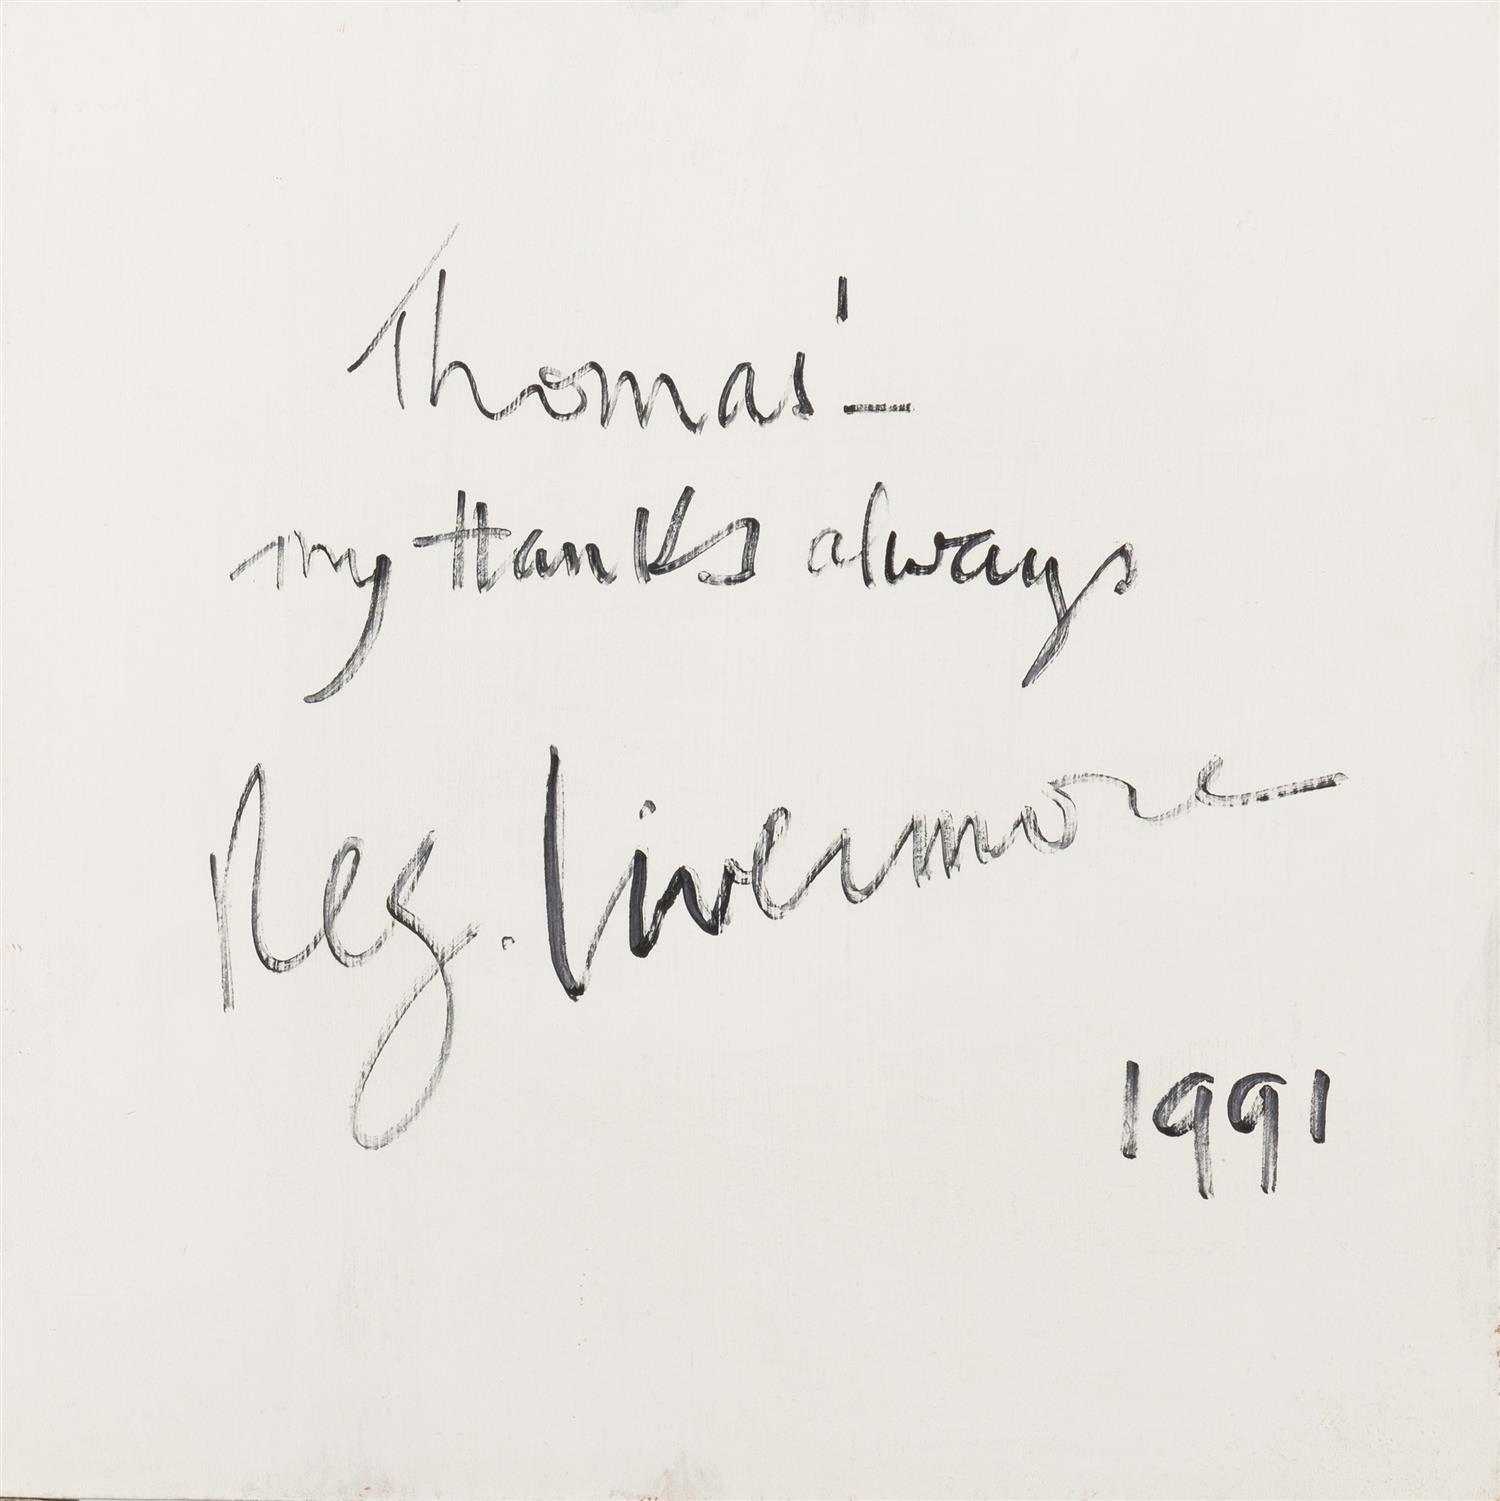 Thomas! —
my thanks always
Reg. Livermore
1991